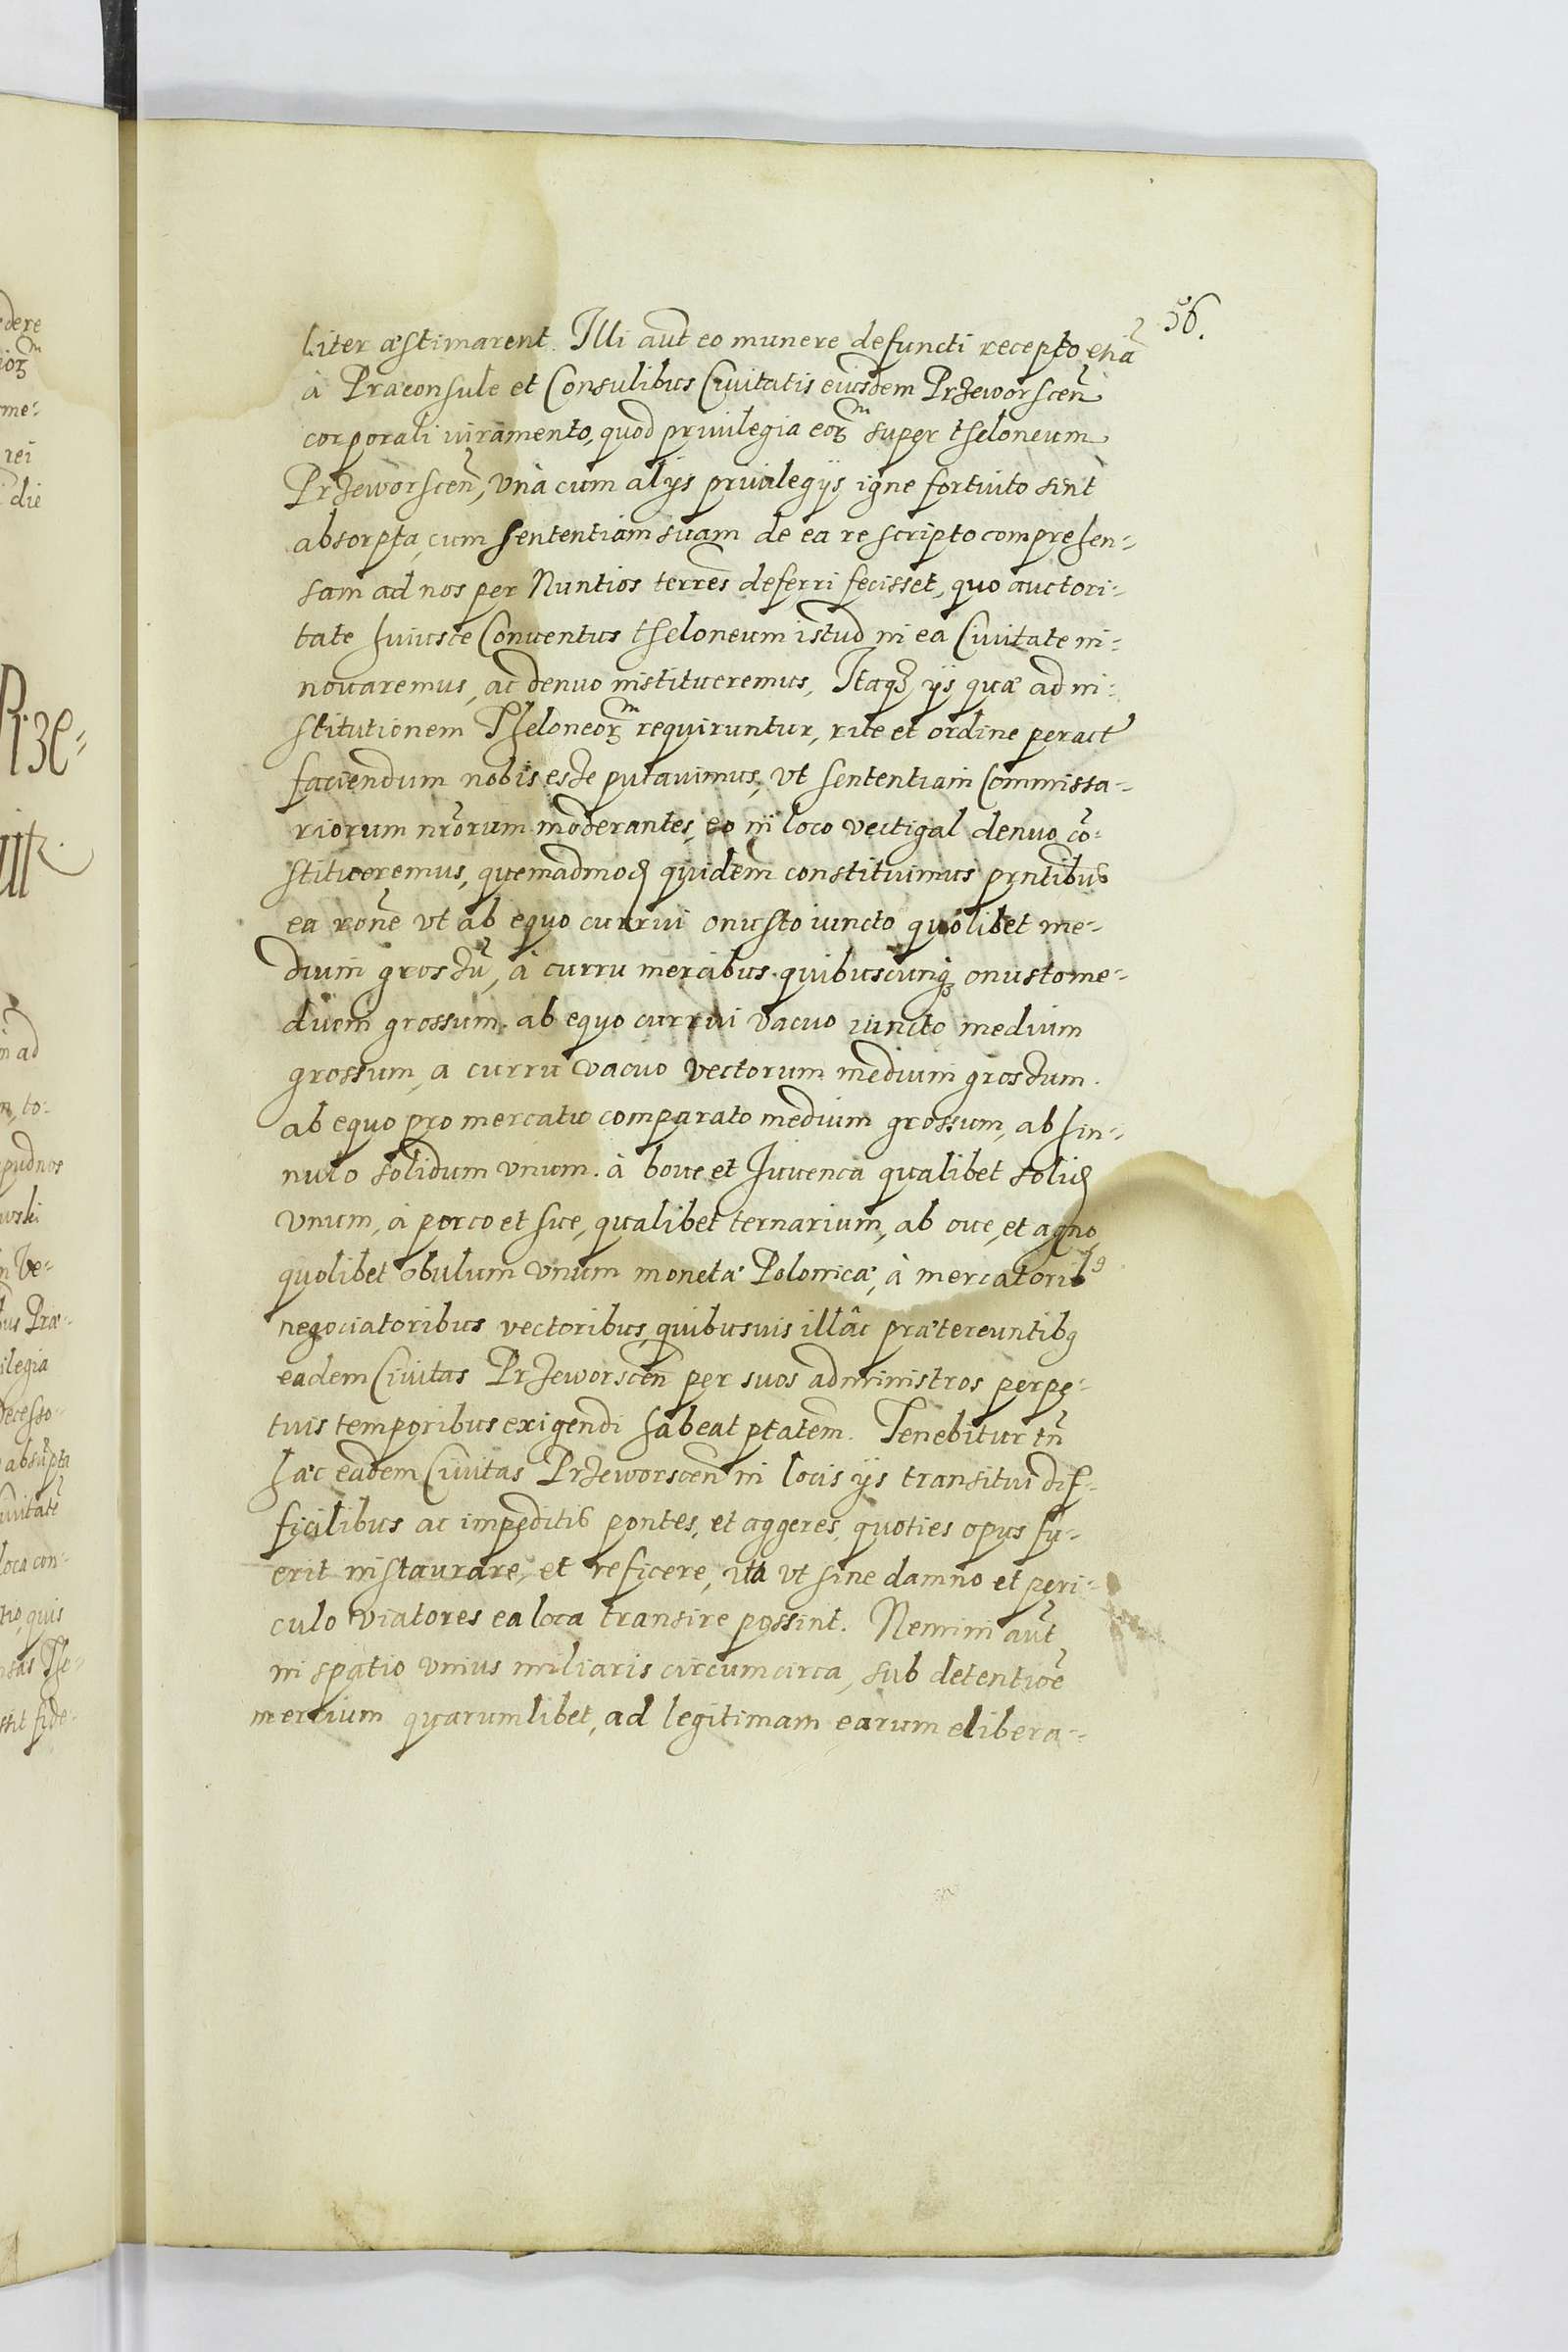 56.
liter æstimarent. Illi aut̃ eo munere defuncti recepto etiã
à Præconsule et Consulibus Ciuitatis eiusdem Przeworscen̄
corporali iuramento, quod priuilegia eorꝫm super theloneum
Przeworscen̄, vnà cum alijs priuilegijs igne fortuito sint
absorpta, cum sententiam suam de ea re scripto comprehen-
sam ad nos per Nuntios terres̃ deferri fecisset, quo auctori-
tate huiusce Conuentus theloneum istud in ea Ciuitate in-
nouaremus, ac denuo institueremus, Itaqꝫ ijs quæ ad in-
stitutionem Theloneorꝫm requiruntur, rite et ordine peract̃
faciendum nobis esse putauimus, vt sententiam Commissa-
riorum nr̃orum moderantes, eo in loco vectigal denuo cõ-
stitueremus, quemadmoḍ quidem constituimus pñtibus
ea rõne vt ab equo currui onusto iuncto quolibet me-
dium grossũ, à curru mercibus quibuscunqꝫ onusto me-
dium grossum. ab equo currui vacuo iuncto medium
grossum, a curru vacuo vectorum medium grossum.
ab equo pro mercatu comparato medium grossum, ab hin-
nulo solidum vnum. à boue et Iuuenca qualibet soliḍ
vnum, à porco et sue, qualibet ternarium, ab oue, et agno,
quolibet obulum vnum monetæ Polonicæ, à mercatorib9
negociatoribus vectoribus quibusuis illâc prætereuntibꝫ
eadem Ciuitas Przeworscen̄ per suos administros perpe-
tuis temporibus exigendi habeat ptãtem. Tenebitur tñ
hæc eadem Ciuitas Przeworscen̄ in locis ijs transitui dif-
ficilibus ac impeditis pontes, et aggeres, quoties opus fu-
erit instaurare, et reficere, ita vt sine damno et peri-
culo viatores ea loca transire possint. Nemini aut̃
in spatio vnius miliaris circumcirca, sub detentiõe
mercium quarumlibet, ad legitimam earum elibera-